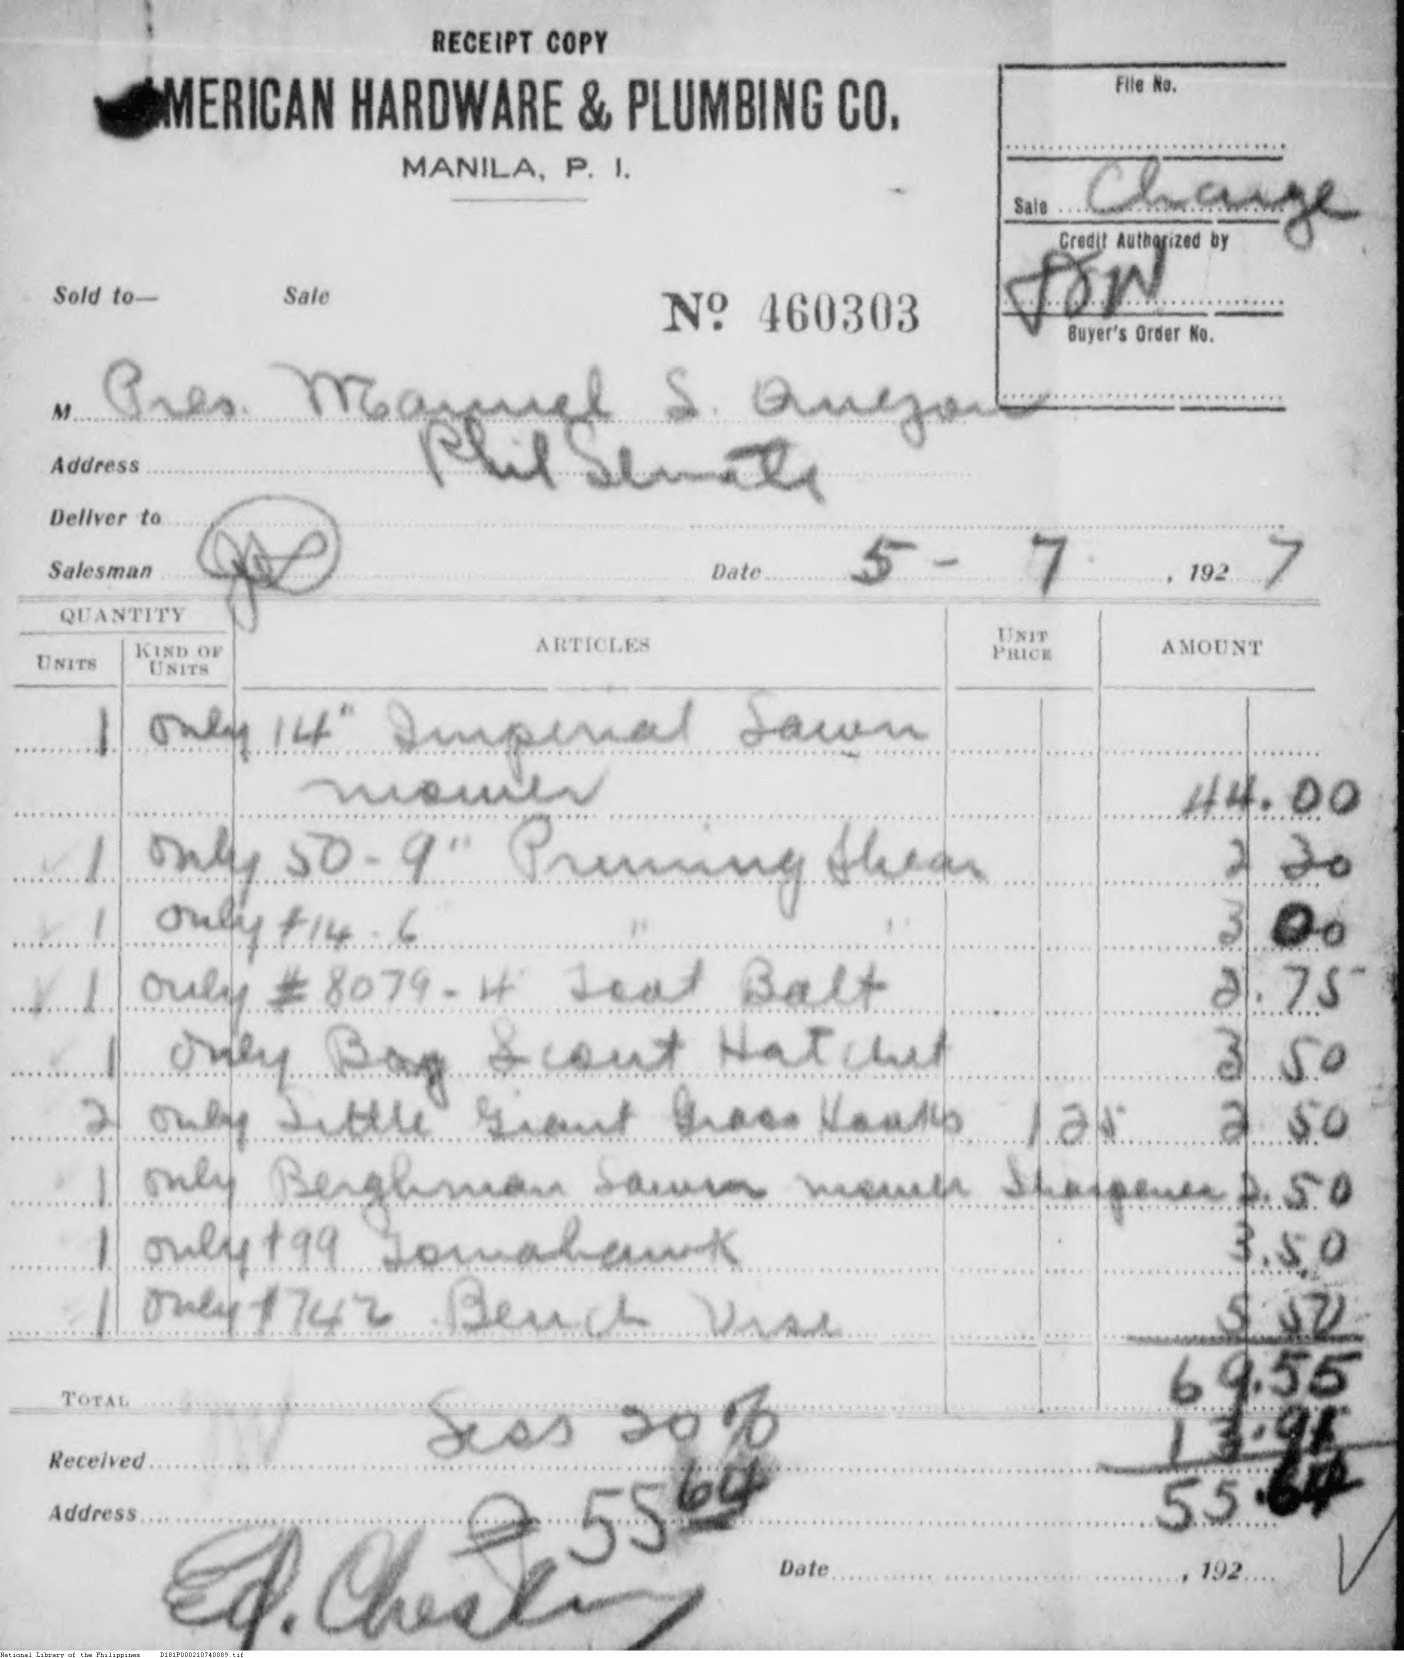 RECEIPT COPY
AMERICAN HARDWARE & PLUMBING CO.
MANILA, P. I.
File No.
Sale Charge
Credit Authorized by
Buyer's Order No.
Sold to— Sale Nº 460303
M Pres. Manuel S. Quezon
Address Phil Senate
Deliver to
Salesman Date 5 - 7 , 192 7
QUANTITY ARTICLES UNIT PRICE AMOUNT
UNITS KIND OF UNITS
1 only 14" Imperial Lawn
mower 44.00
1 only 50-9" Pruning Shear 2 30
1 only #14-6 " " 3 00
1 only #8079-4 Foot Bolt 2.75
1 only Boy Scout Hatchet 3 50
2 only Little Giant Grass Hooks 1 25 2 50
1 only Berghman Lawn mower Sharpener 2.50
1 only #99 Tomahawk 3.50
1 only #742 Bench Vise 5 50
TOTAL 69.55
Less 20% 13.91
Received
55.64
Address ₱ 55 64
Ed. Chesley
Date , 192
National Library of the Philippines D181P000210740089.tif